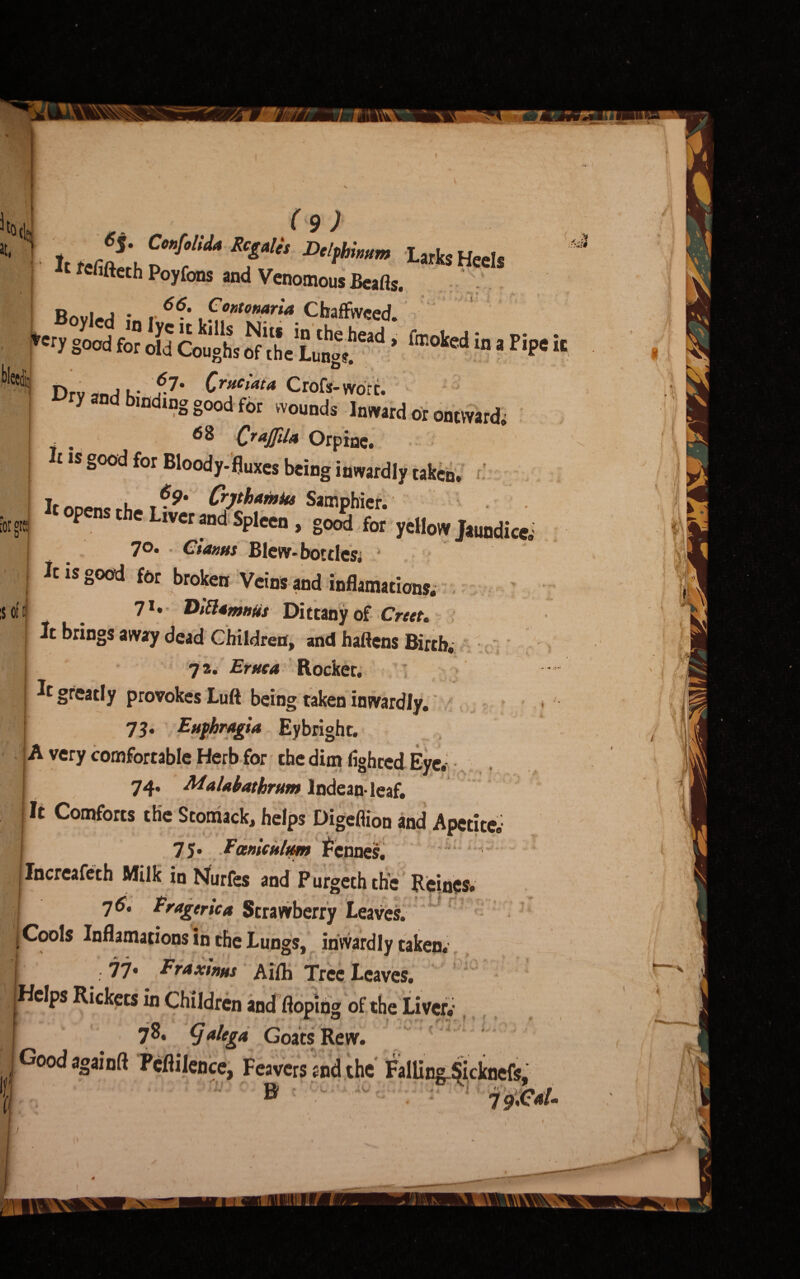 (9)
65. Conſolida Regales Delphinum Larks Heels
It reſiſteth Poyſons and Venomous Beaſts.
66. Centonaria Chaffweed.
Boyled in lye it kills Nits in the head, ſmoked in a Pipe it
very good for old Coughs of the Lungs.
67. Cruciata Croſs-wort.
Dry and binding good for wounds Inward or outward;
68 Craſſila Orpine.
It is good for Bloody-fluxes being inwardly taken.
69. Crythamus Samphier.
It opens the Liver and Spleen, good for yellow Jaundice;
70. Cianus Blew-bottles;
It is good for broken Veins and inflamations;
71. Dictamnus Dittany of Creet.
It brings away dead Children, and haſtens Birth.
72. Eruca Rocket.
It greatly provokes Luſt being taken inwardly.
73. Euphragia Eybright.
A very comfortable Herb for the dim ſighted Eye.
74. Malabathrum Indean-leaf.
It Comforts the Stomack, helps Digeſtion and Apetite.
75. Fœniculum Fennes.
Increaſeth Milk in Nurſes and Purgeth the Reines.
76. Fragerica Strawberry Leaves.
Cools Inflamations in the Lungs, inwardly taken.
77. Fraxinus Aiſh Tree Leaves.
Helps Rickets in Children and ſtoping of the Liver.
78. Galega Goats Rew.
Good againſt Peſtilence, Feavers and the Falling Sickneſs,
B 79.Gal-